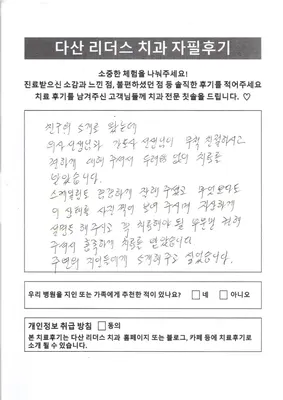 다산 리더스 치과 자필후기
소중한 체험을 나눠주세요!
진료받으신 소감과 느낀 점, 불편하셨던 점 등 솔직한 후기를 적어주세요
치료 후기를 남겨주신 고객님들께 치과 전문 칫솔을 드립니다. ♡
친구의 소개로 왔는데
의사 선생님과 간호사 선생님이 무척 친절하시고
편하게 대해 주셔서 두려움 없이 치료를
받았습니다.
스케일링도 꼼꼼하게 잘해 주셨고 무엇보다도
이 상태를 사진 찍어 보여 주시며 자상하게
설명도 해주시고 꼭 치료해야 될 부분만 권해
주셔서 흡족하게 치료를 받았습니다.
주변의 지인들에게 소개해주고 싶었습니다.
우리 병원을 지인 또는 가족에게 추천한 적이 있나요? □ 네 □ 아니오
개인정보 취급 방침 □ 동의
본 치료후기는 다산 리더스 치과 홈페이지 또는 블로그, 카페 등에 치료후기로
소개 될 수 있습니다.